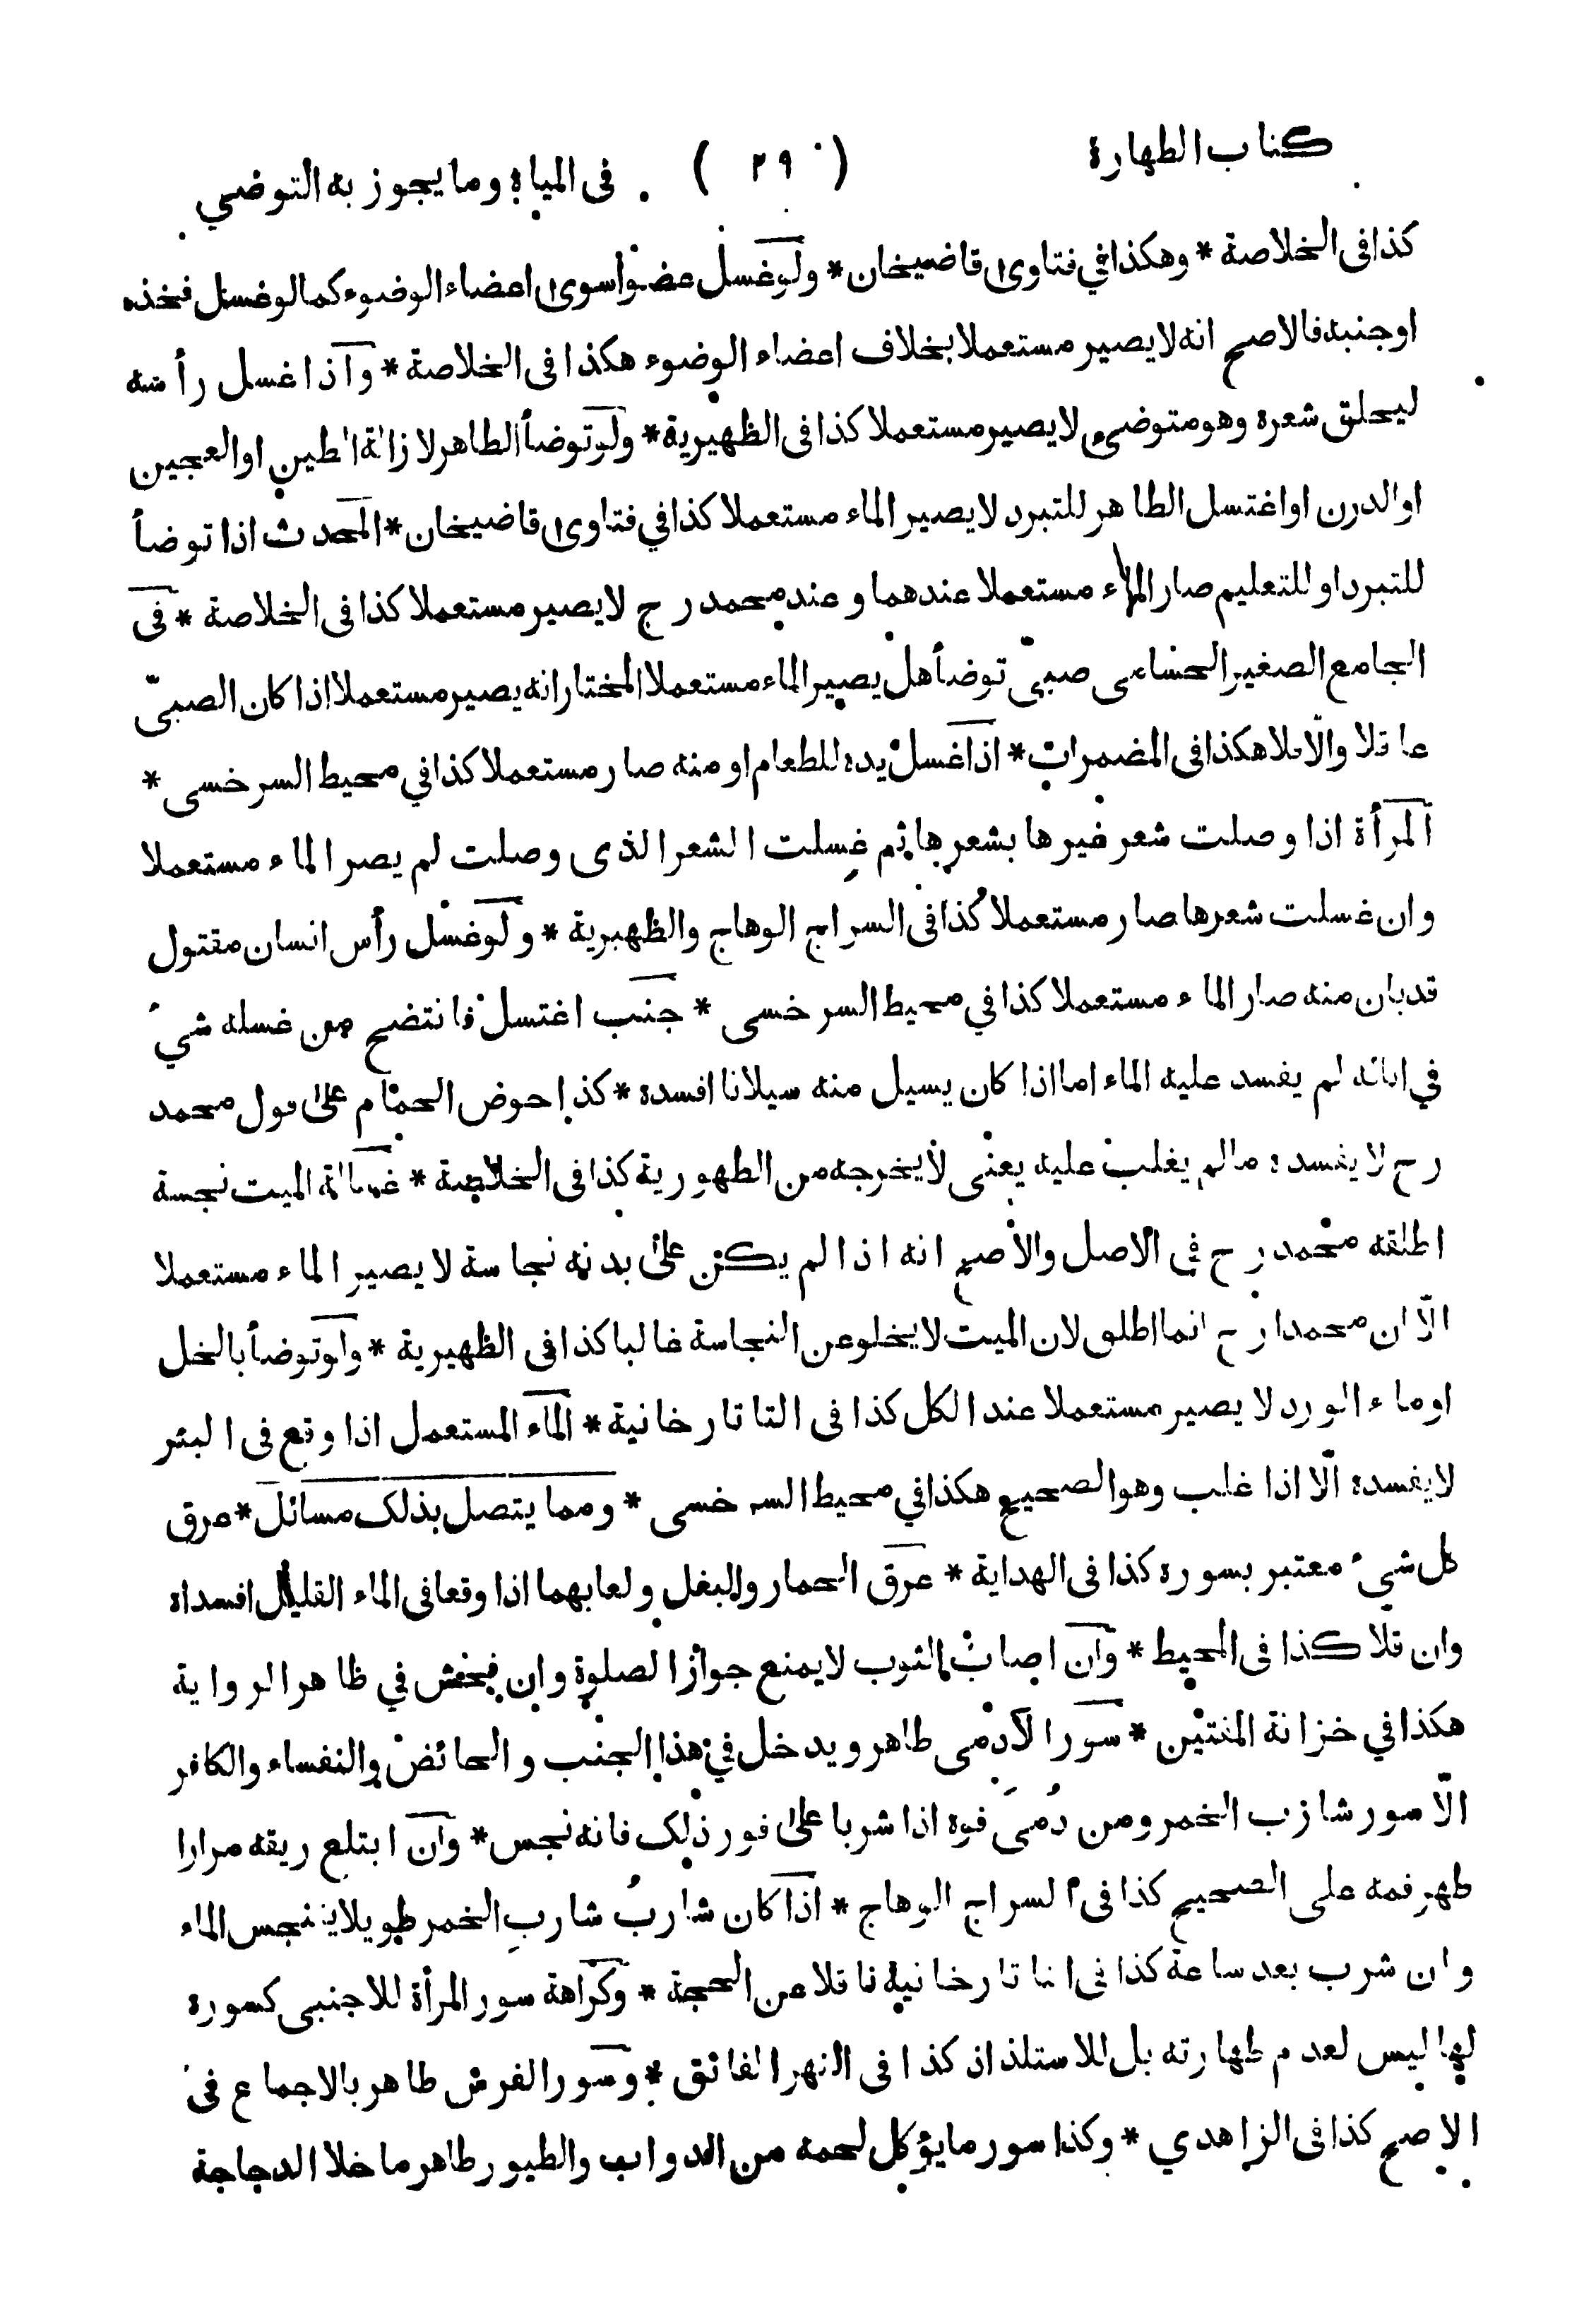 كتاب الطهارة ( ٢٩ ) فى المياه وما يجوز به التوضي
كذا فى الخلاصة * وهكذا في فتاوى قاضيخان * ولو غسل عضوا سوى اعضاء الوضوء كما لو غسل فخذه
او جنبه فالاصح انه لا يصير مستعملا بخلاف اعضاء الوضوء هكذا فى الخلاصة * واذا غسل رأسه
ليحلق شعره وهو متوضئ لا يصير مستعملا كذا فى الظهيرية * ولو توضأ الطاهر لازالة الطين او العجين
او الدرن او اغتسل الطاهر للتبرد لا يصير الماء مستعملا كذا في فتاوى قاضيخان * المحدث اذا توضأ
للتبرد او للتعليم صار الماء مستعملا عندهما و عند محمد رح لا يصير مستعملا كذا فى الخلاصة * فى
الجامع الصغير الحسامى صبىّ توضأ هل يصير الماء مستعملا المختار انه يصير مستعملا اذا كان الصبىّ
عاقلا والّا فلا هكذا فى المضمرات * اذا غسل يده للطعام او منه صار مستعملا كذا في محيط السرخسى *
المرأة اذا وصلت شعر غيرها بشعرها ثم غسلت الشعر الذى وصلت لم يصر الماء مستعملا
وان غسلت شعرها صار مستعملا كذا فى السراج الوهاج والظهيرية * ولو غسل رأس انسان مقتول
قد بان منه صار الماء مستعملا كذا في محيط السرخسى * جنب اغتسل فانتضح من غسله شيء
في انائه لم يفسد عليه الماء اما اذا كان يسيل منه سيلانا افسده * كذا حوض الحمّام على قول محمد
رح لا يفسده مالم يغلب عليه يعنى لا يخرجه من الطهورية كذا فى الخلاصة * غسالة الميت نجسة
اطلقه محمد رح في الاصل والاصح انه اذا لم يكن على بدنه نجاسة لا يصير الماء مستعملا
الّا ان محمدا رح انما اطلق لان الميت لا يخلو عن النجاسة غالبا كذا فى الظهيرية * ولو توضأ بالخل
او ماء الورد لا يصير مستعملا عند الكل كذا فى التاتارخانية * الماء المستعمل اذا وقع فى البئر
لا يفسده الّا اذا غلب وهو الصحيح هكذا في محيط السرخسى * ومما يتصل بذلك مسائل * عرق
كل شيء معتبر بسوره كذا فى الهداية * عرق الحمار والبغل ولعابهما اذا وقعا فى الماء القليل افسداه
وان قلا كذا فى المحيط * وان اصاب الثوب لا يمنع جواز الصلوة وان فحش في ظاهر الرواية
هكذا في خزانة المفتين * سور الآدمى طاهر ويدخل في هذا الجنب والحائض والنفساء والكافر
الّا سور شارب الخمر ومن دمى فوه اذا شربا على فور ذلك فانه نجس * وان ابتلع ريقه مرارا
طهر فمه على الصحيح كذا فى السراج الوهاج * اذا كان شارب شارب الخمر طويلا ينجس الماء
وان شرب بعد ساعة كذا فى التاتارخانية ناقلا عن الحجة * وكراهة سور المرأة للاجنبى كسوره
لها ليس لعدم طهارته بل للاستلذاذ كذا فى النهر الفائق * وسور الفرس طاهر بالاجماع فى
الاصح كذا فى الزاهدي * وكذا سور ما يؤكل لحمه من الدواب والطيور طاهر ما خلا الدجاجة